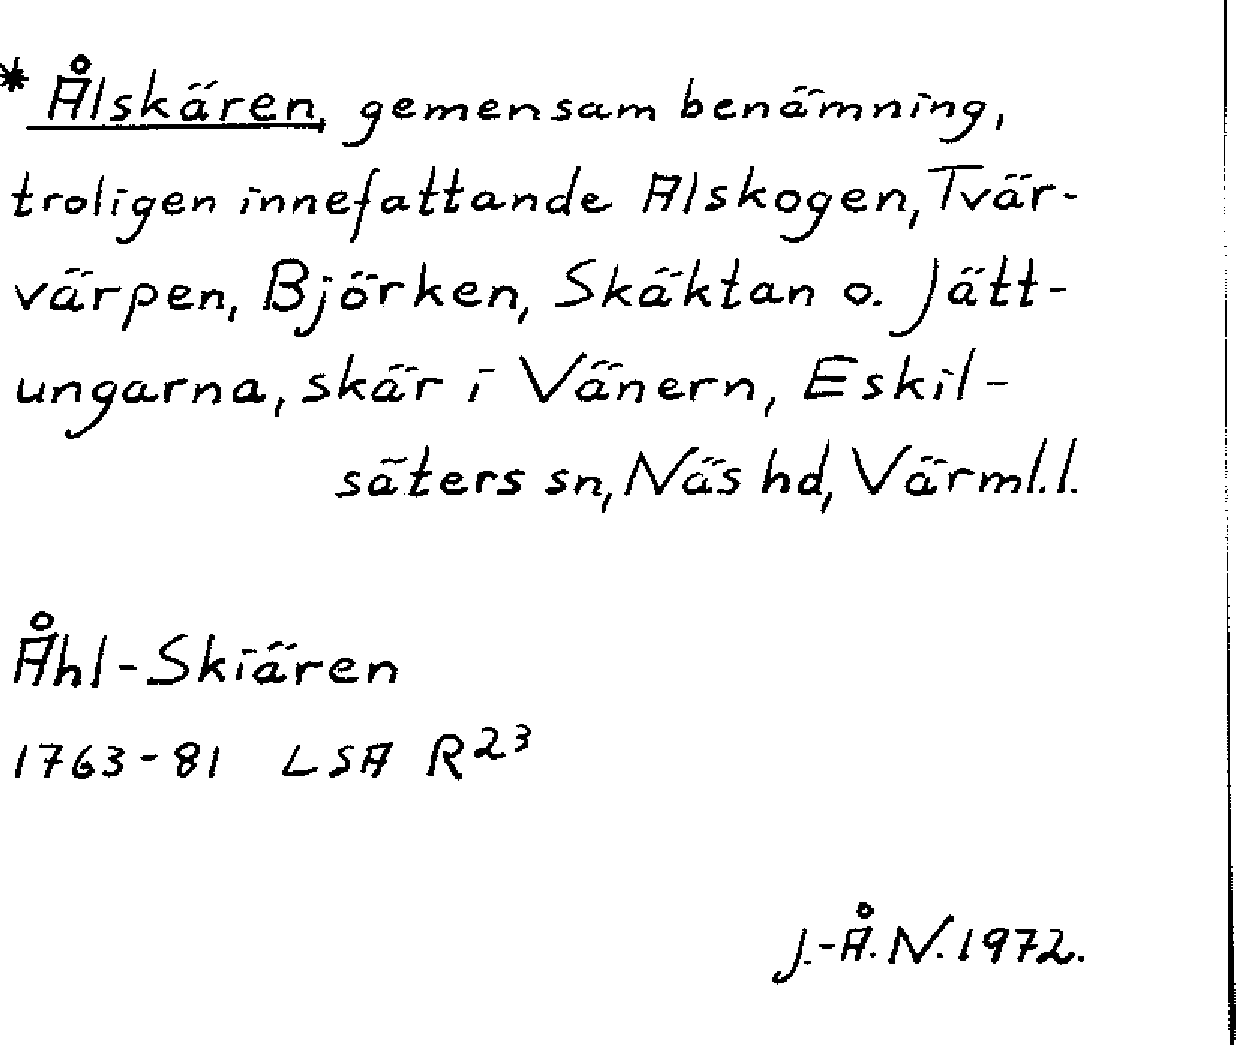 * Ålskären, gemensam benämning,
troligen innefattande Alskogen, Tvär-
värpen, Björken, Skäktan o. Jätt-
ungarna, skär i Vänern, Eskil-
säters sn, Näs hd, Värml.l.
Åhl-Skiären
1763-81 LSA R²³
J.-Å. N. 1972.